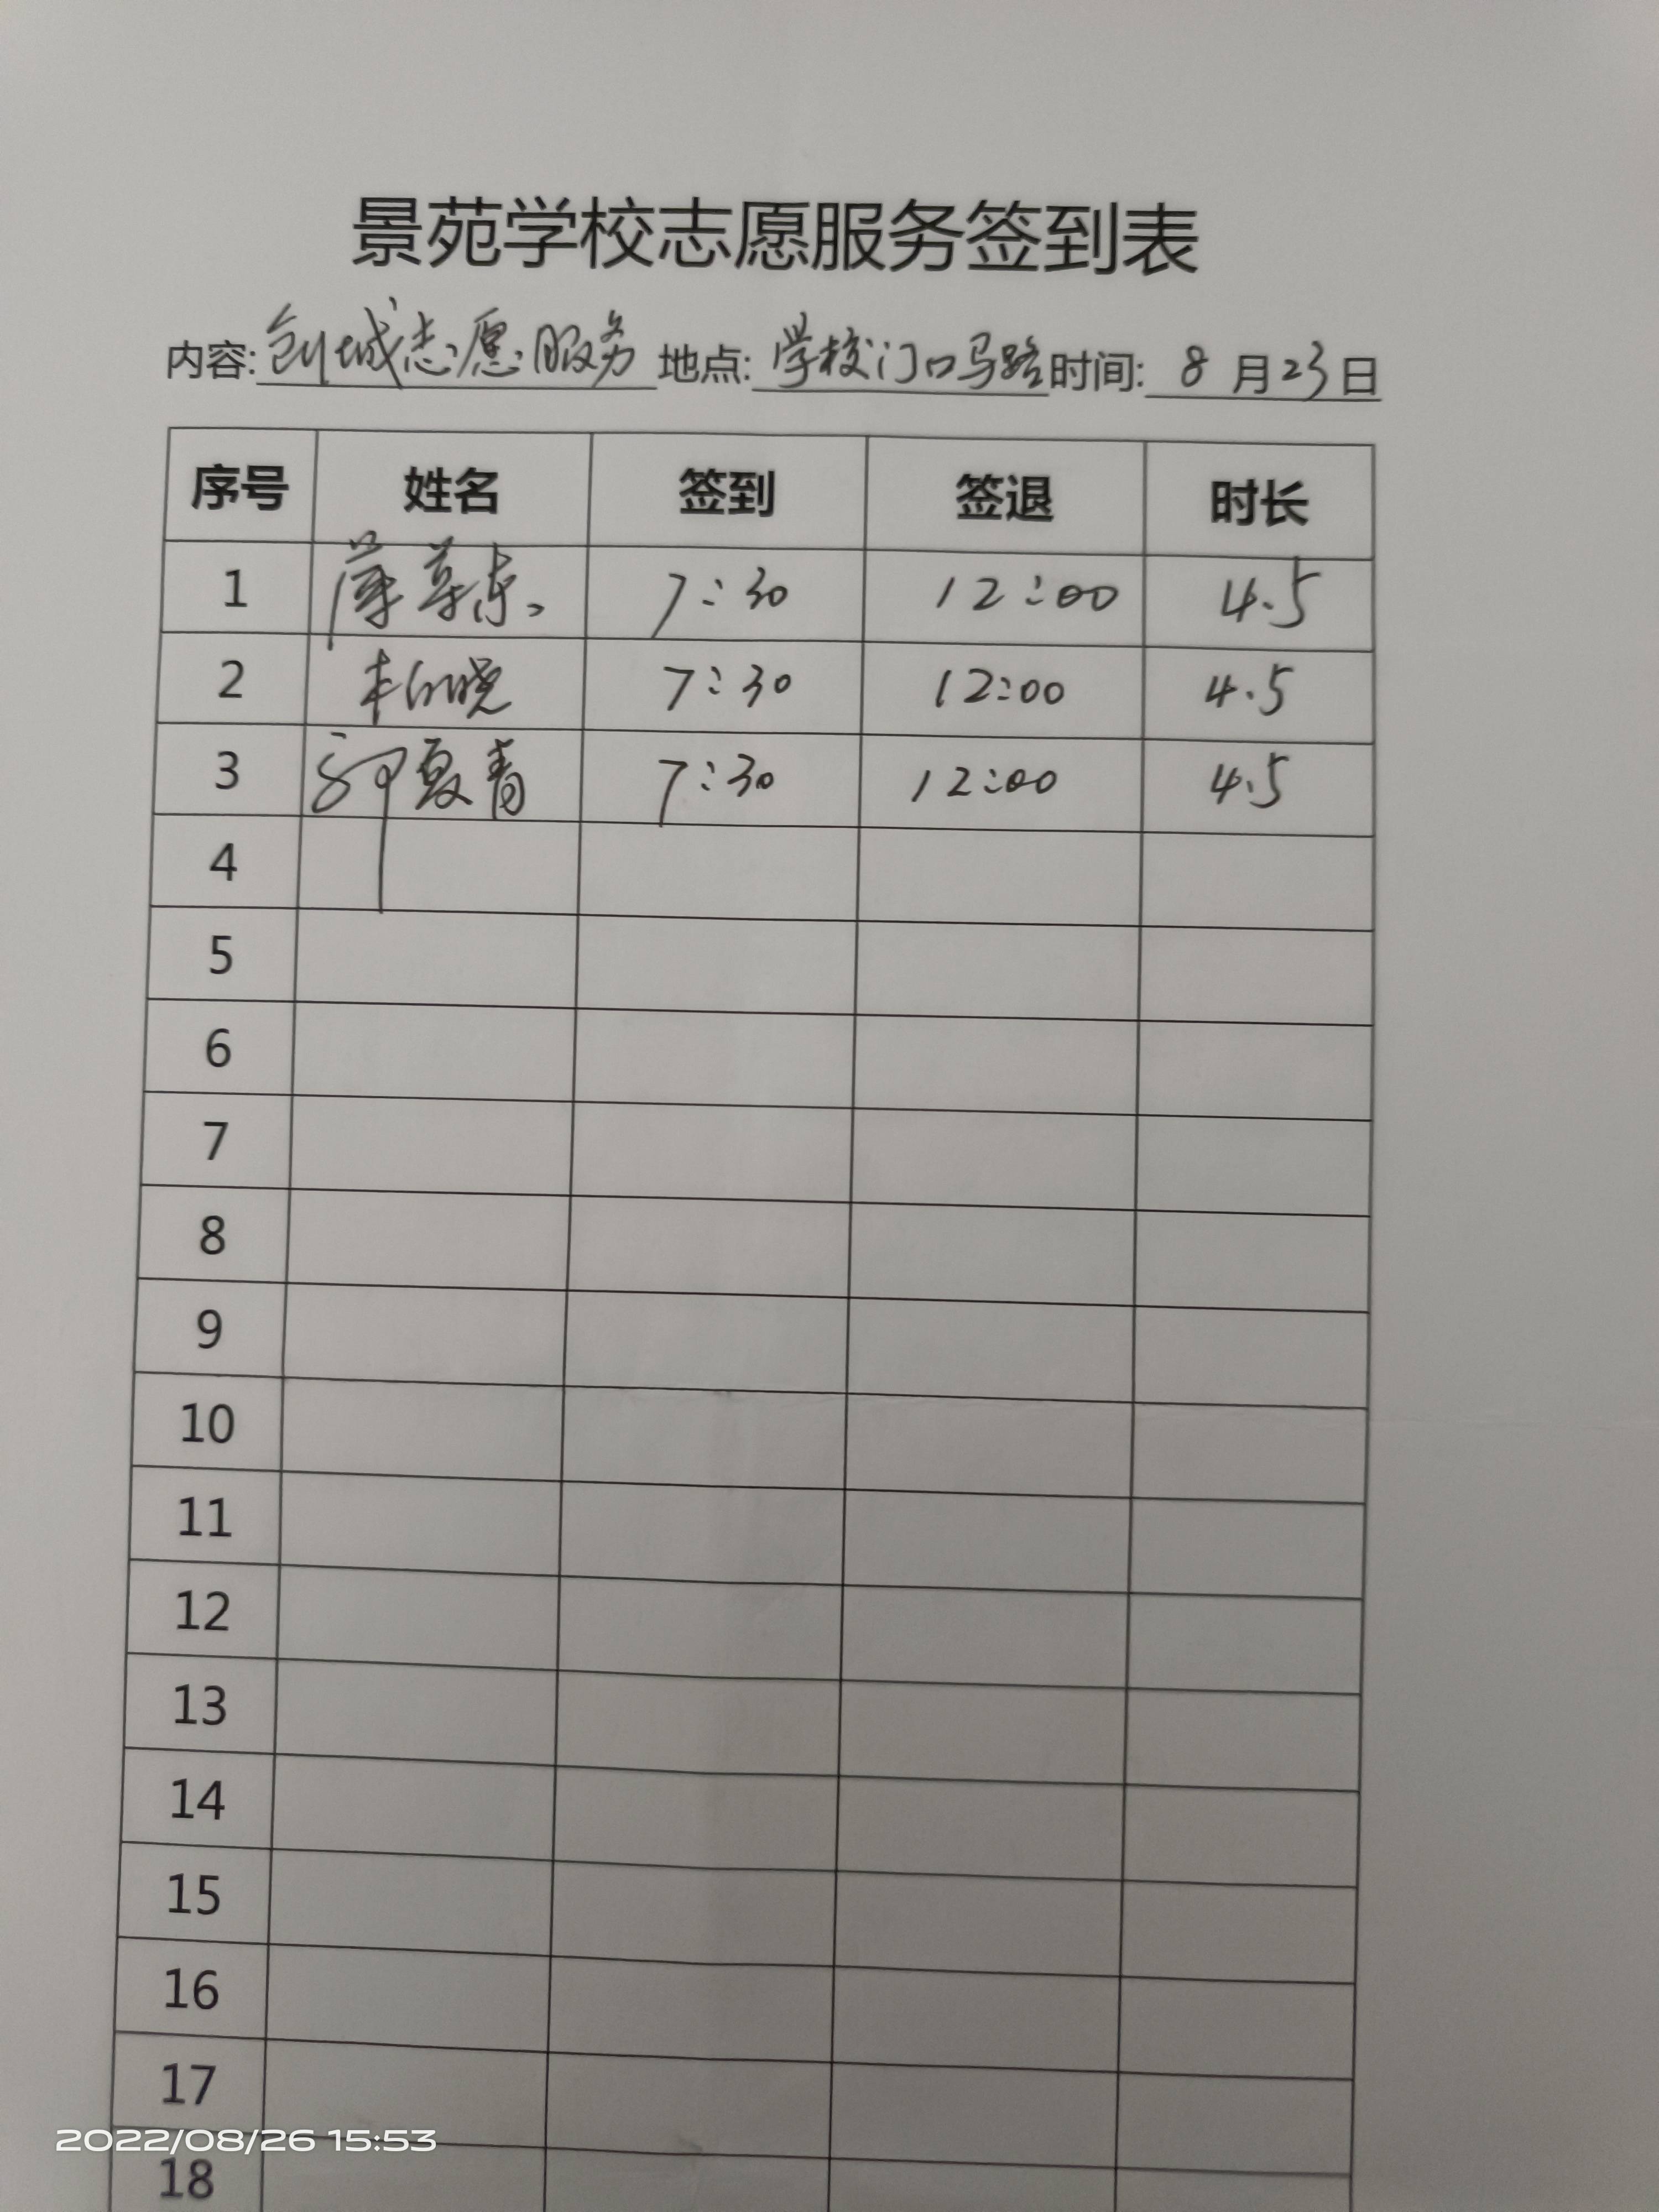 景苑学校志愿服务签到表
内容:创城志愿服务 地点:学校门口马路 时间: 8月23日
序号 姓名 签到 签退 时长
1 7:30 12:00 4.5
2 7:30 12:00 4.5
3 夏青 7:30 12:00 4.5
4
5
6
7
8
9
10
11
12
13
14
15
16
17
2022/08/26 15:53
18